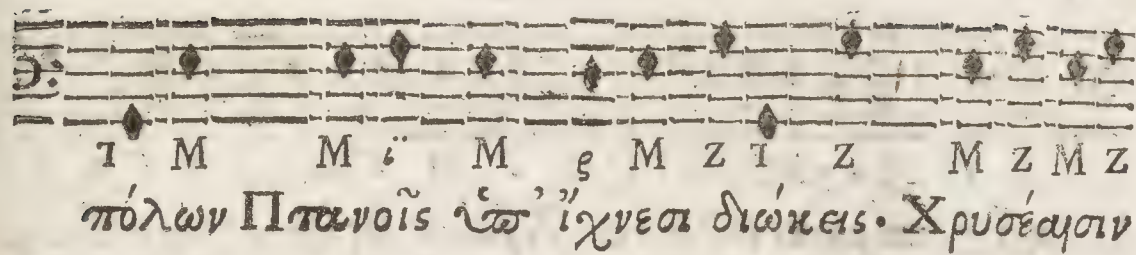 ɿ M M ϊ M ϛ M Z ɿ Z M Z M Z
πόλων Πτανοῖς ὑπ’ ἴχνεσι διώκεις· Χρυσέαισιν